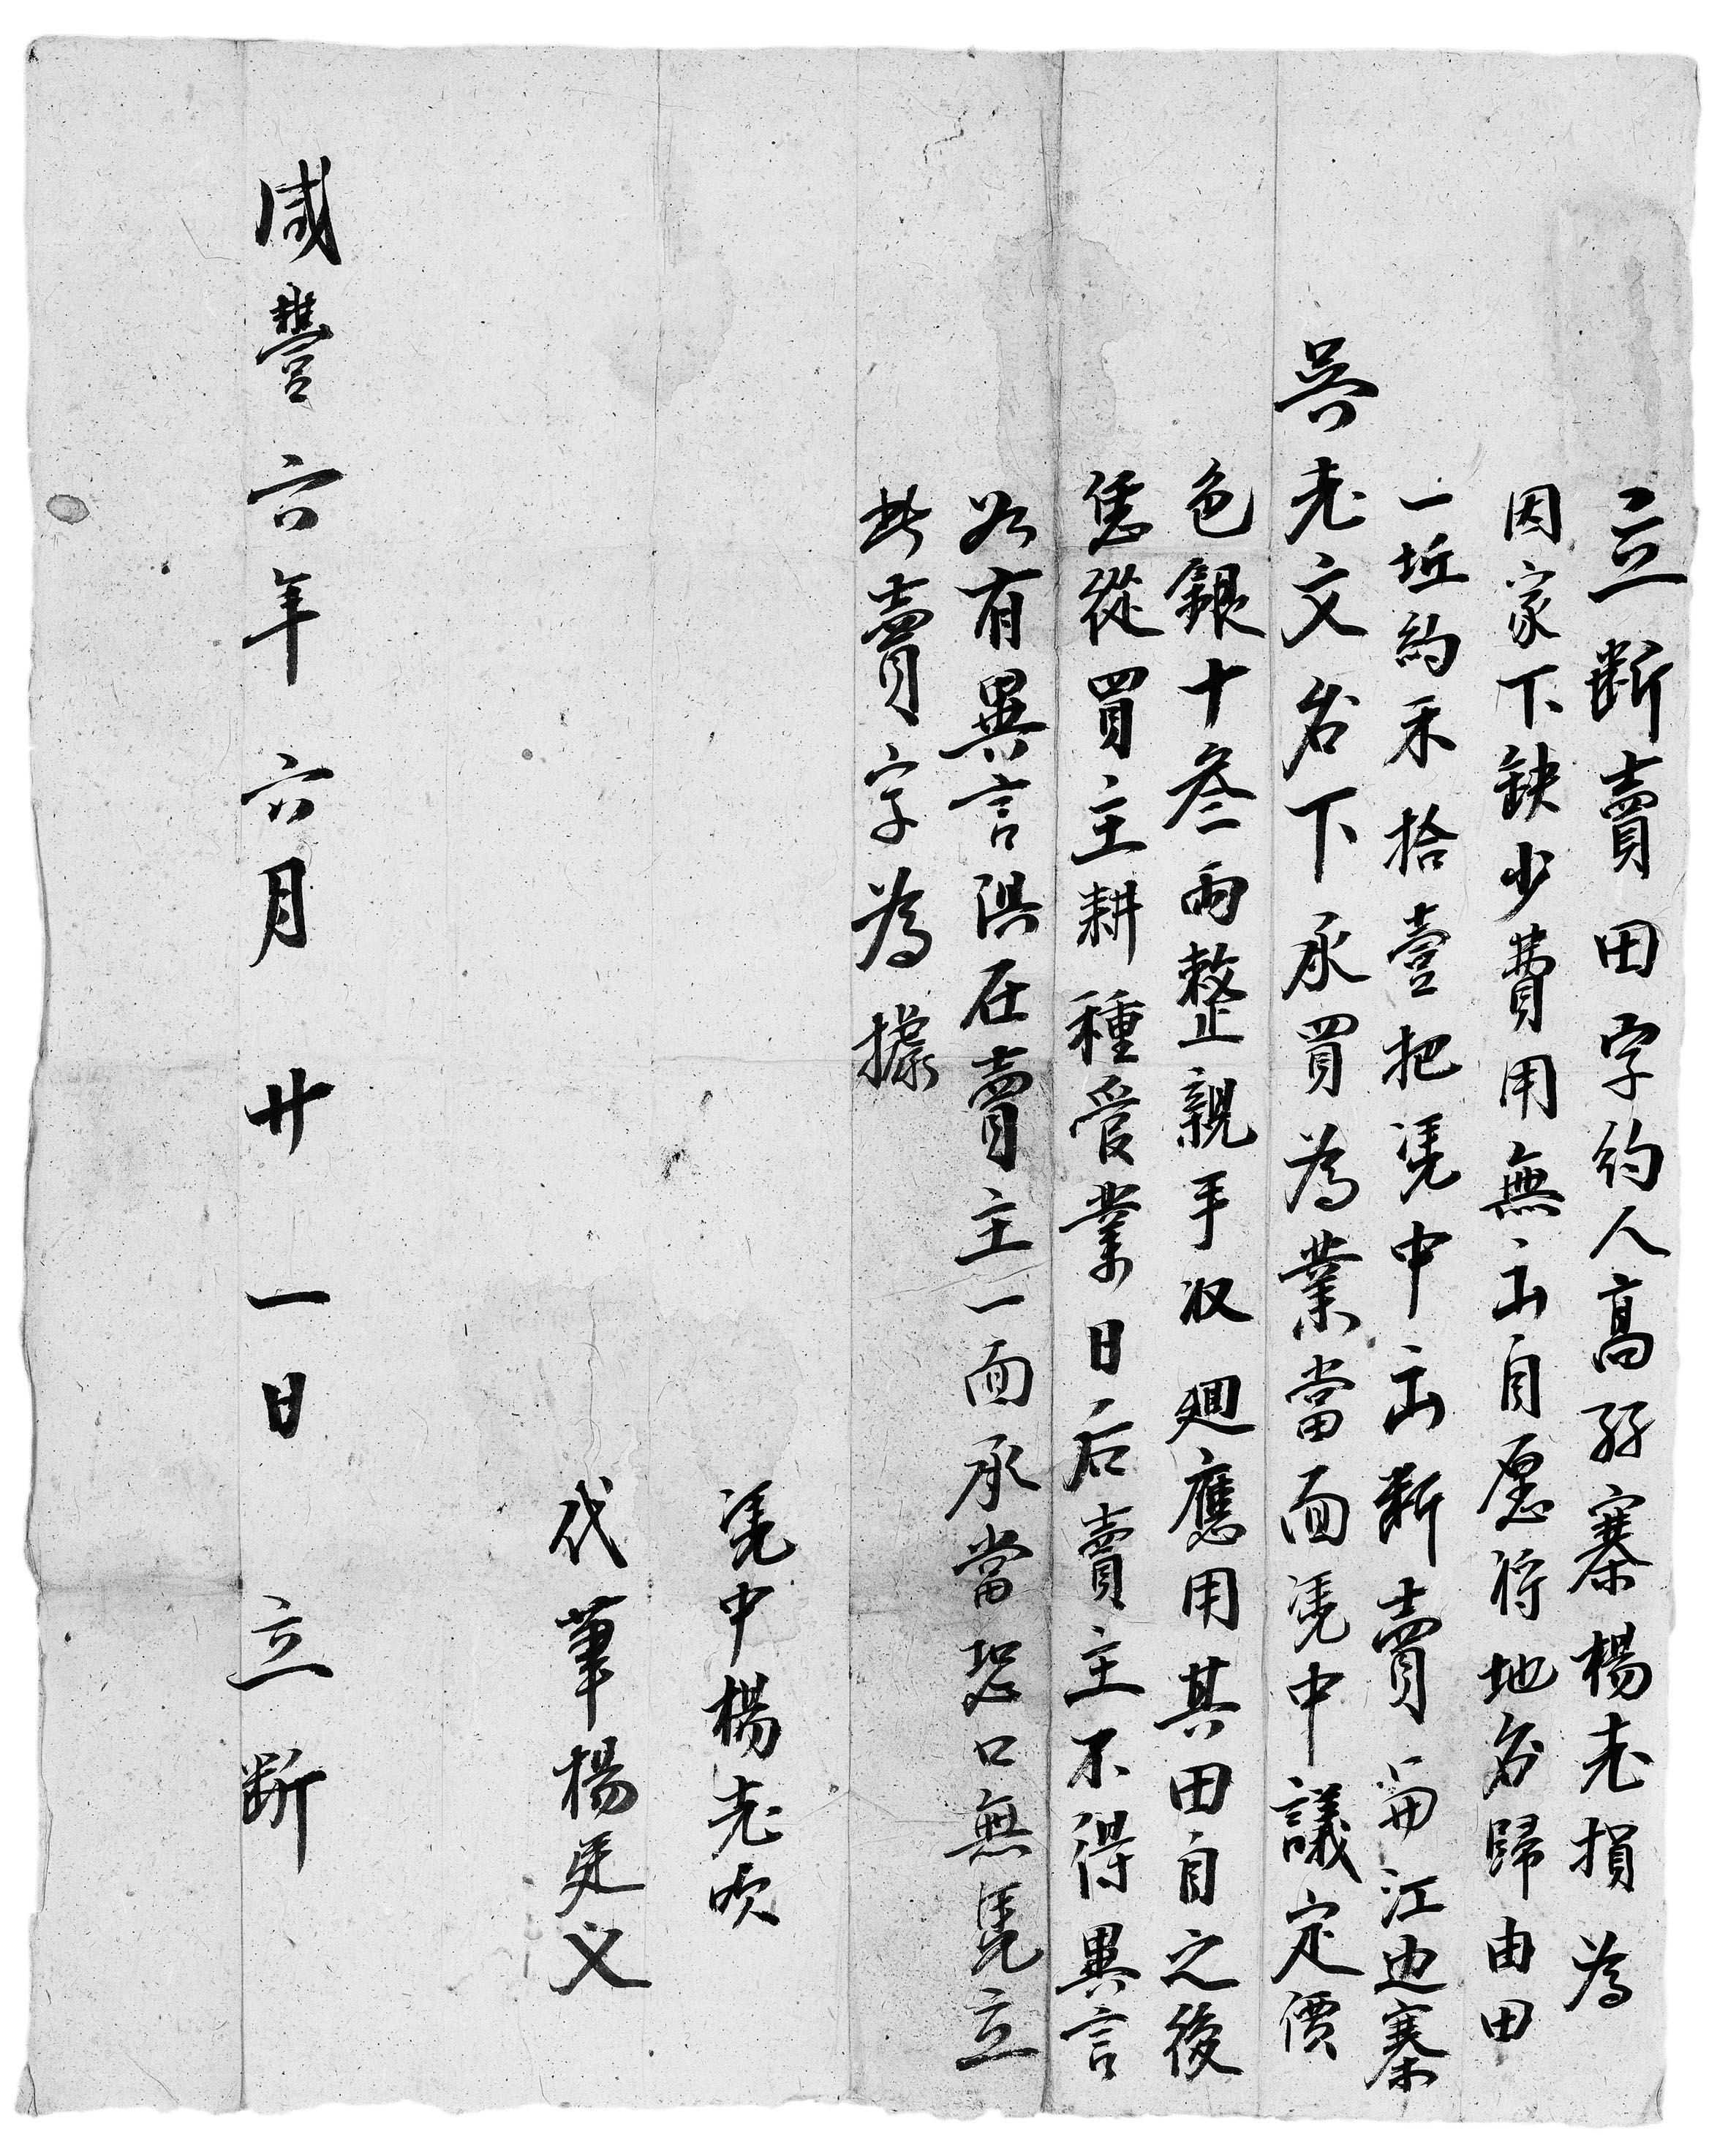 立断賣田字約人高孖寨楊老損為
因家下缺少費用無出自愿將地名歸由田
一坵約禾拾壹把凴中出断賣與江边寨
吳老文名下承買為業當面凴中議定價
色銀十叁兩整親手収廻應用其田自之後
恁從買主耕種管業日后賣主不得異言
如有異言俱在賣主一面承當恐口無凴立
此賣字為據
凴中楊老吹
代筆楊廷义
咸豐六年六月廿一日立断